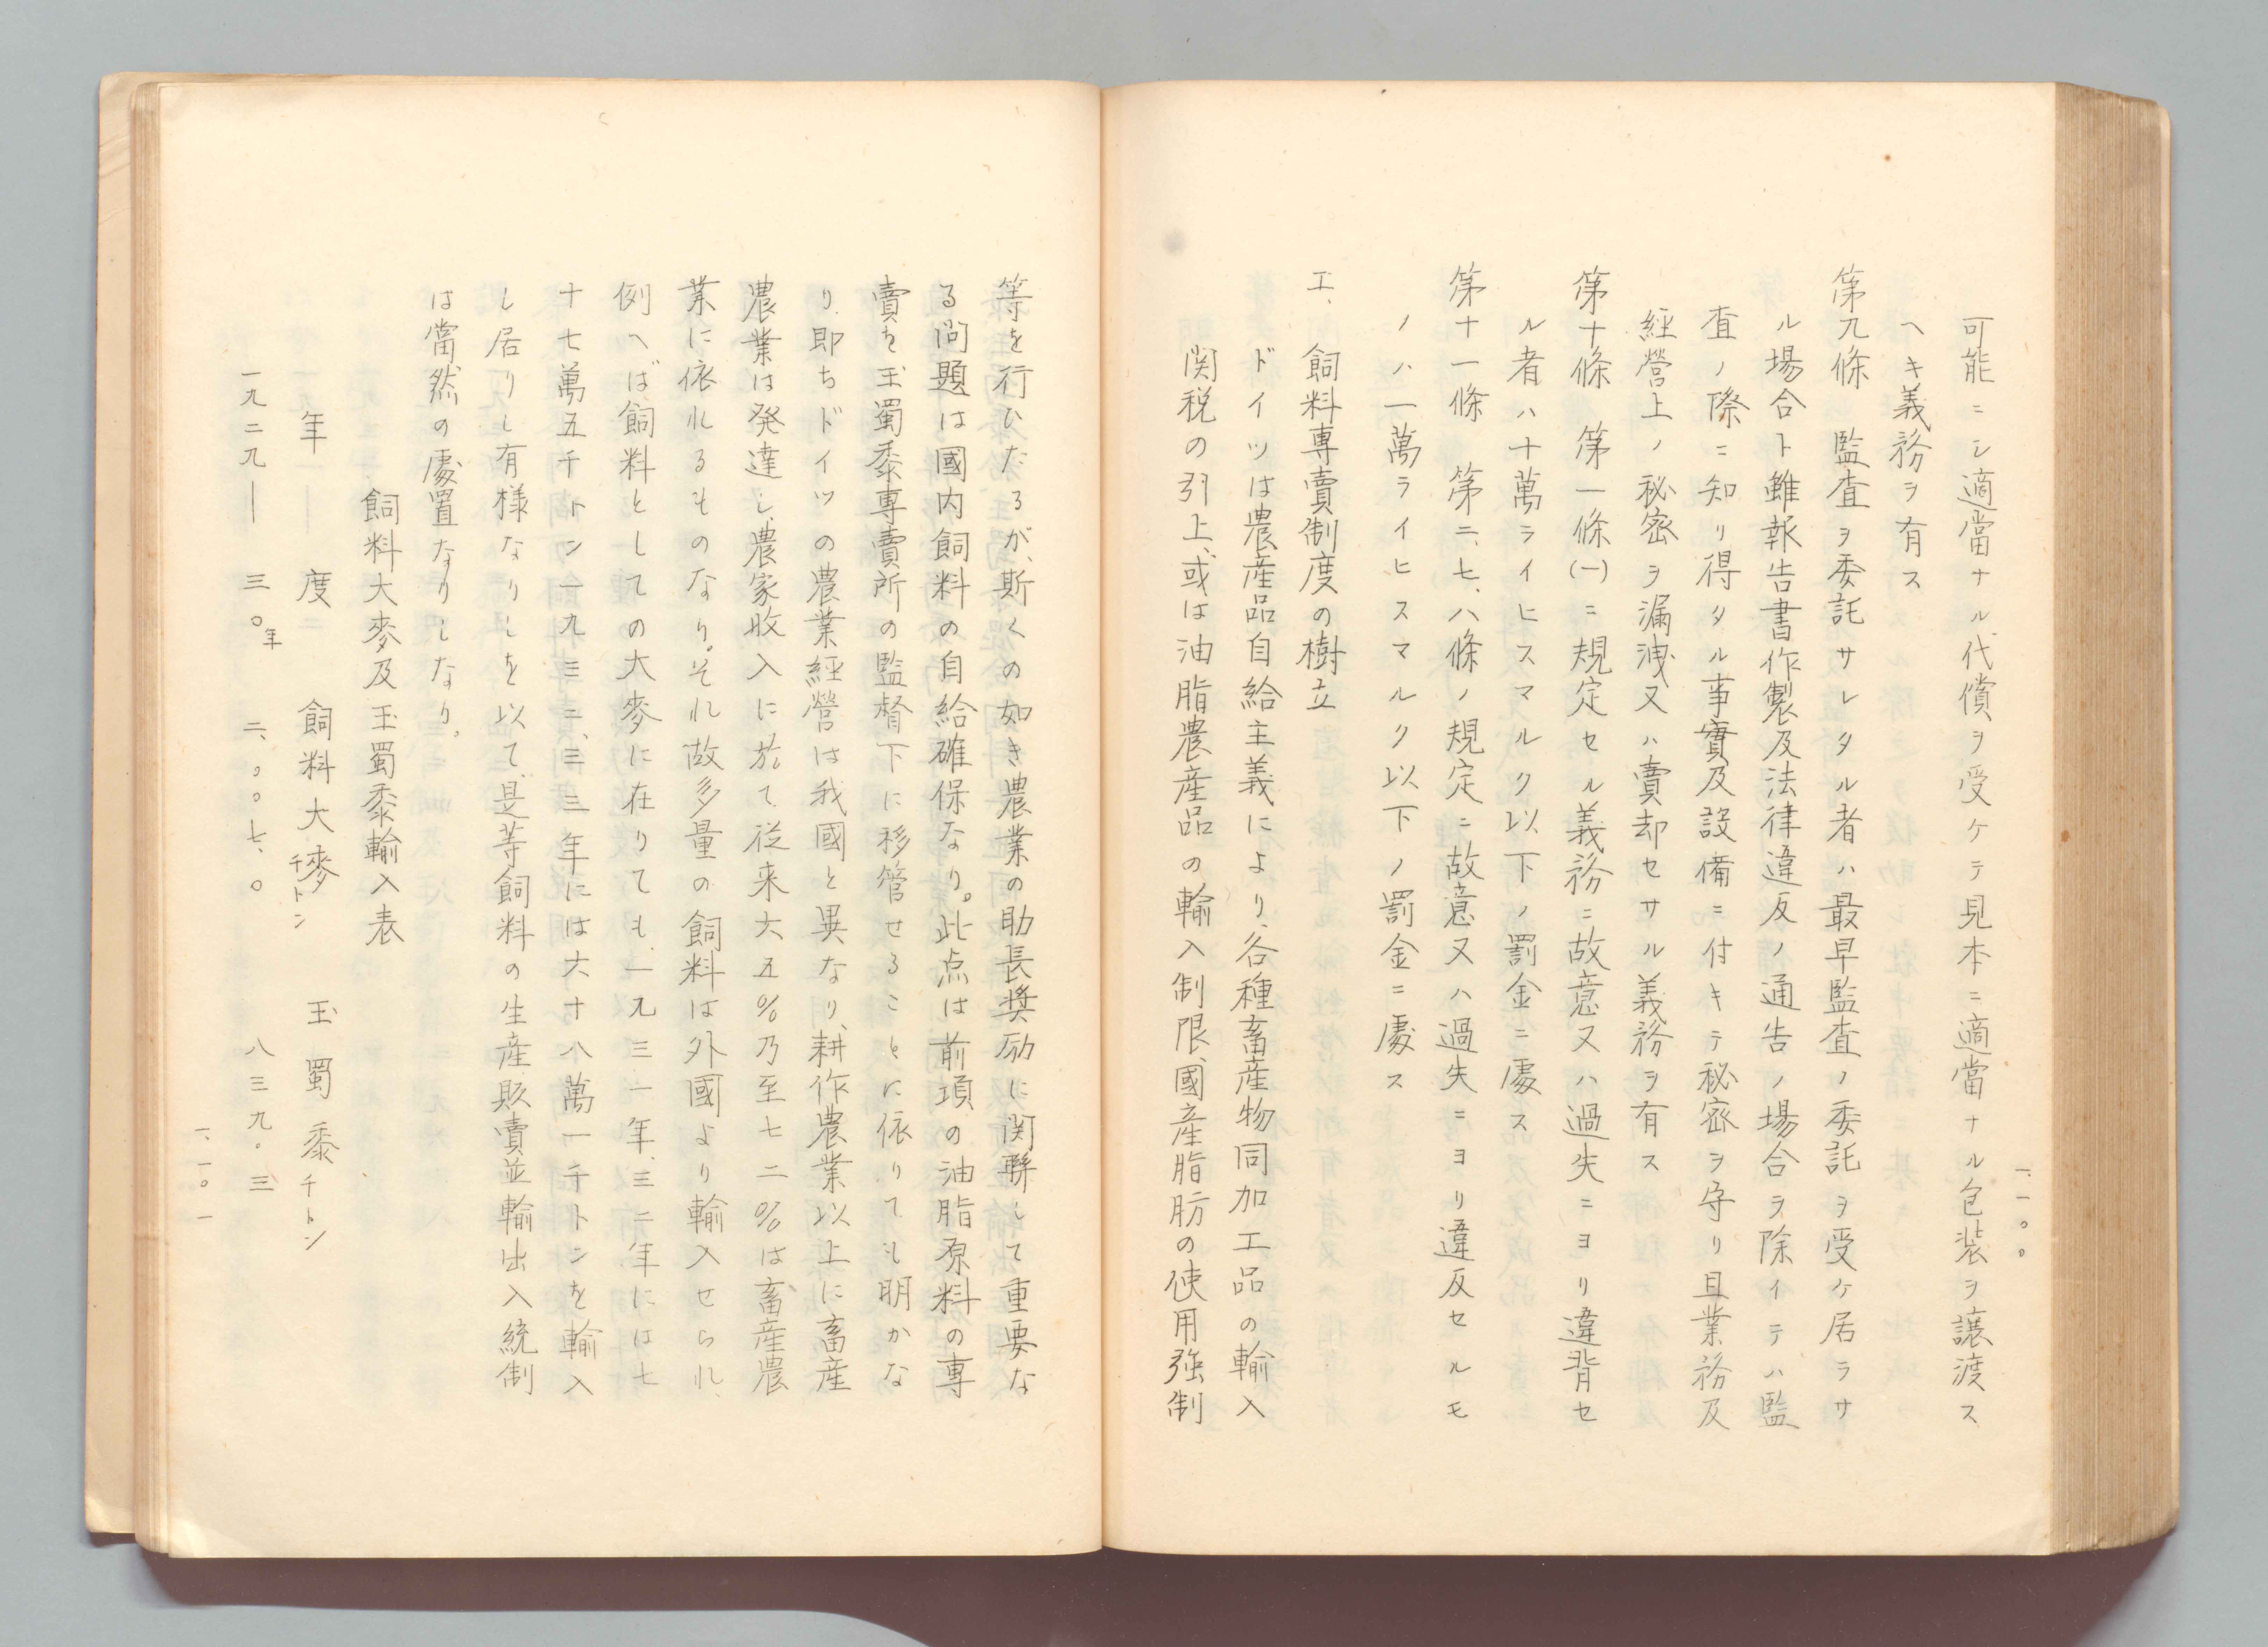 一、一〇〇
可能ニシ適當ナル代償ヲ受ケテ見本ニ適當ナル包装ヲ譲渡ス
ヘキ義務ヲ有ス
第九條　監査ヲ委託サレタル者ハ最早監査ノ委託ヲ受ケ居ラサ
ル場合ト雖報告書作製及法律違反ノ通告ノ場合ヲ除イテハ監
査ノ際ニ知リ得タル事實及設備ニ付キテ秘密ヲ守リ且業務及
經營上ノ秘密ヲ漏洩又ハ賣却セサル義務ヲ有ス
第十條　第一條(一)ニ規定セル義務ニ故意又ハ過失ニヨリ違背セ
ル者ハ十萬ライヒスマルク以下ノ罰金ニ處ス
第十一條　第二、七、八條ノ規定ニ故意又ハ過失ニヨリ違反セルモ
ノハ一萬ライヒスマルク以下ノ罰金ニ處ス
エ、飼料專賣制度の樹立
ドイツは農産品自給主義により、各種畜産物同加工品の輸入
関税の引上、或は油脂農産品の輸入制限、國産脂肪の使用強制
等を行ひたるが、斯くの如き農業の助長奬励に関聯して重要な
る問題は國内飼料の自給確保なり。此点は前項の油脂原料の專
賣を玉蜀黍專賣所の監督下に移管せることに依りても明かな
り、即ちドイツの農業經營は我國と異なり、耕作農業以上に畜産
農業は発達し、農家收入に於て従来六五%乃至七二%は畜産農
業に依れるものなり。それ故多量の飼料は外國より輸入せられ、
例へば飼料としての大麥に在りても、一九三一年、三二年には七
十七萬五千トン一九三二、三三年には六十八萬一千トンを輸入
し居りし有様なりしを以て、是等飼料の生産販賣並輸出入統制
は當然の處置なりしなり。
飼料大麥及玉蜀黍輸入表
年　度　飼料大麥千トン　玉蜀黍千トン
一九二九―三〇年　二、〇〇七、〇　八三九。三
一、一〇一